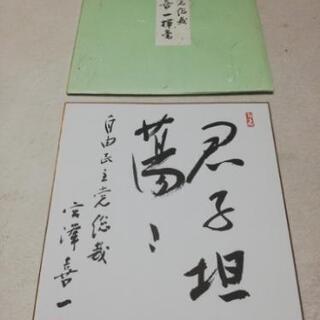 党総裁
喜一揮毫
君子坦
蕩々
自由民主党総裁
宮澤喜一